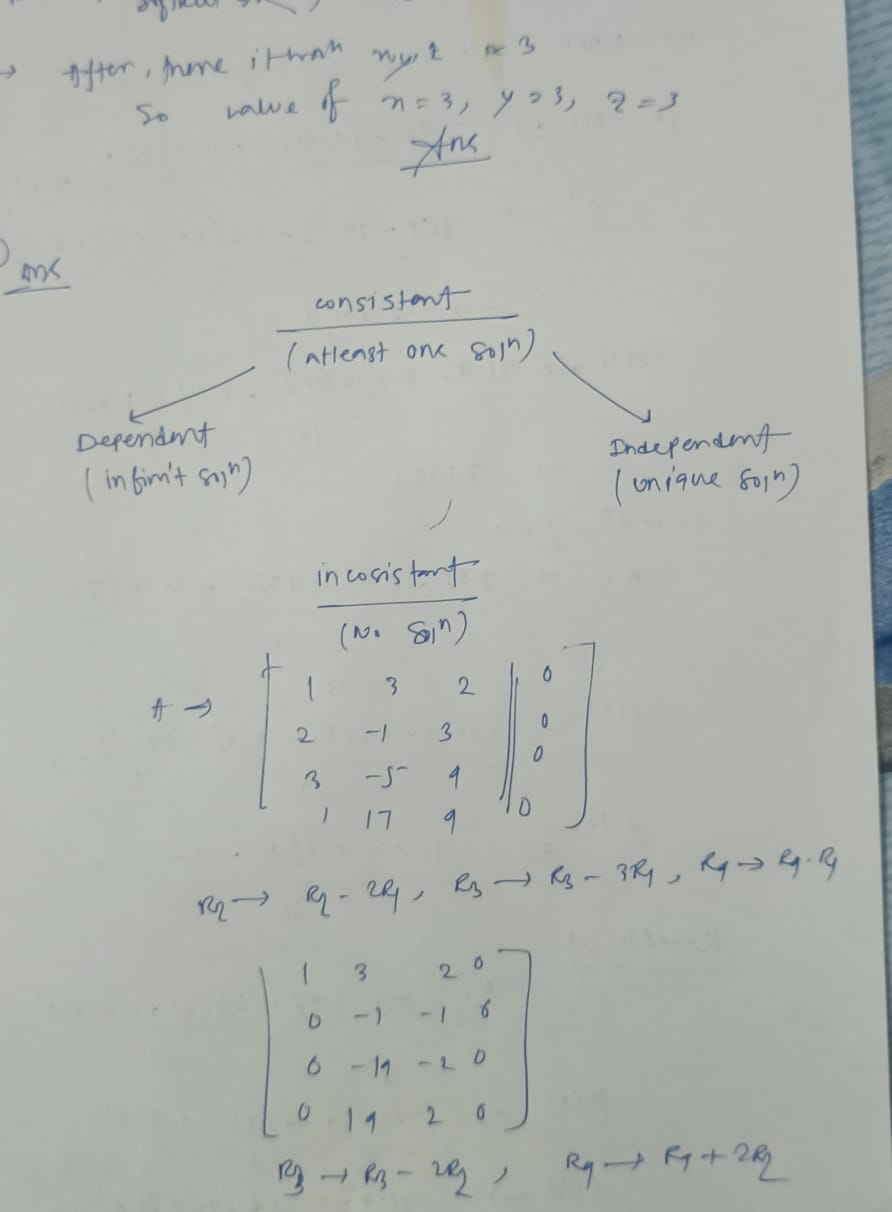 → After, more
So value of x = 3, y = 3, z = 3
Ans
Ans
consistant
(atleast one sol^n)
Dependent Independent
(infinit sol^n) (unique sol^n)
incosistant
(No sol^n)
A → [ 1 3 2 || 0 ]
2 -1 3 0
3 -5 4 0
1 17 4 0
R2 → R2 - 2R1, R3 → R3 - 3R1, R4 → R4 - R1
1 3 2 0
0 -7 -1 0
0 -14 -2 0
0 14 2 0
R3 → R3 - 2R2, R4 → R4 + 2R2